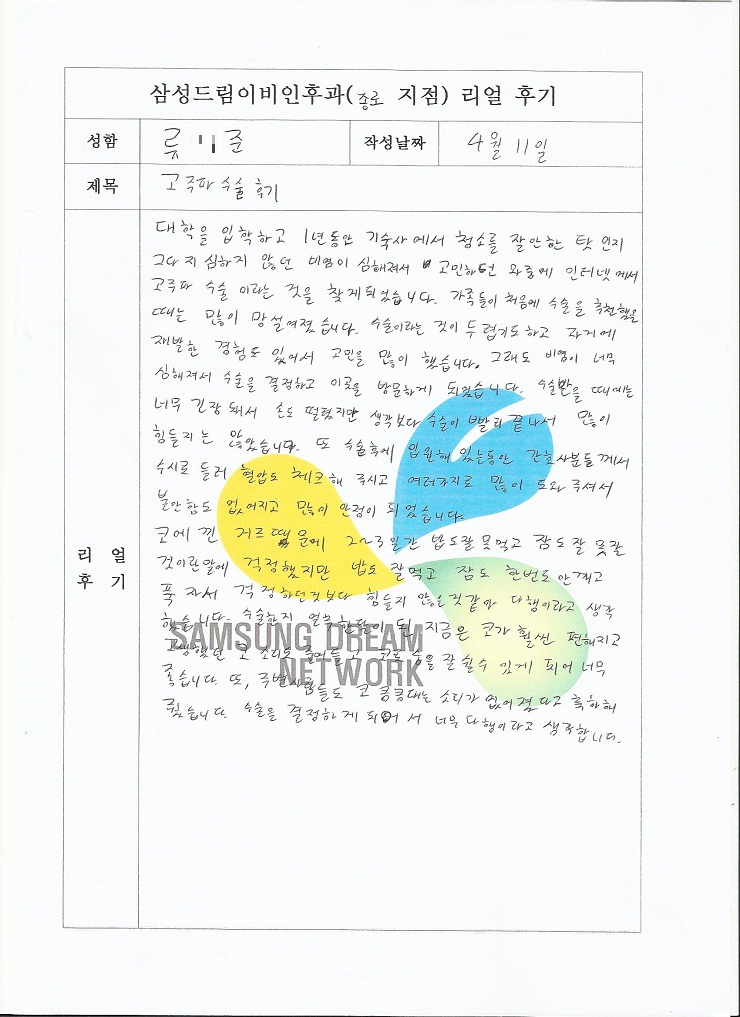 삼성드림이비인후과(종로 지점) 리얼 후기
성함 류 준 작성날짜 4월 11일
제목 고주파 수술 후기
대학을 입학하고 1년동안 기숙사에서 청소를 잘안한 탓 인지
그다지 심하지 않던 비염이 심해져서 고민하던 와중에 인터넷에서
고주파 수술 이라는 것을 찾게되었습니다. 가족들이 처음에 수술을 추천했을
때는 많이 망설여졌습니다. 수술이라는 것이 두렵기도하고 과거에
재발한 경험도 있어서 고민을 많이 했습니다. 그래도 비염이 너무
심해져서 수술을 결정하고 이곳을 방문하게 되었습니다. 수술받을 때에는
너무 긴장돼서 손도 떨렸지만 생각보다 수술이 빨리 끝나서 많이
힘들지는 않았습니다. 또 수술후에 입원해 있는동안 간호사분들께서
수시로 들러 혈압도 체크해 주시고 여러가지로 많이 도와주셔서
불안함도 없어지고 많이 안정이 되었습니다.
코에 낀 거즈때문에 2~3일간 밥도잘못먹고 잠도잘못잘
것이란말에 걱정했지만 밥도 잘먹고 잠도 한번도안깨고
푹 자서 걱정하던것보다 힘들지 않은것같아 다행이라고 생각
했습니다. 수술한지 얼추한달이 된 지금은 코가 훨씬 편해지고
코 소리도 줄어들고 코로 숨을 잘 쉴수 있게 되어 너무
좋습니다. 또, 주변사람들도 코 킁킁대는 소리가 없어졌다고 축하해
줬습니다. 수술을 결정하게 되어서 너무다행이라고 생각합니다.
리 얼
후 기
SAMSUNG DREAM
NETWORK